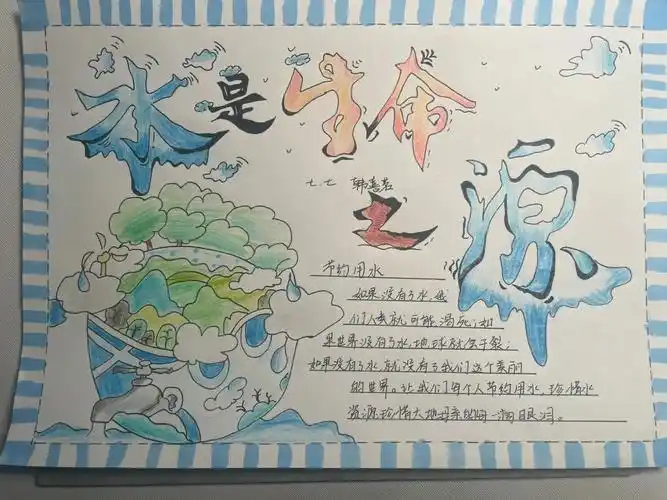 水是生命
之源
七.七 韩
节约用水
如果没有了水,我
们人类就可能渴死;如
果世界没有了水,地球就会干裂;
如果没有了水,就没有了我们这个美丽
的世界。让我们每个人节约用水,珍惜水
资源,珍惜大地母亲的每一滴眼泪。